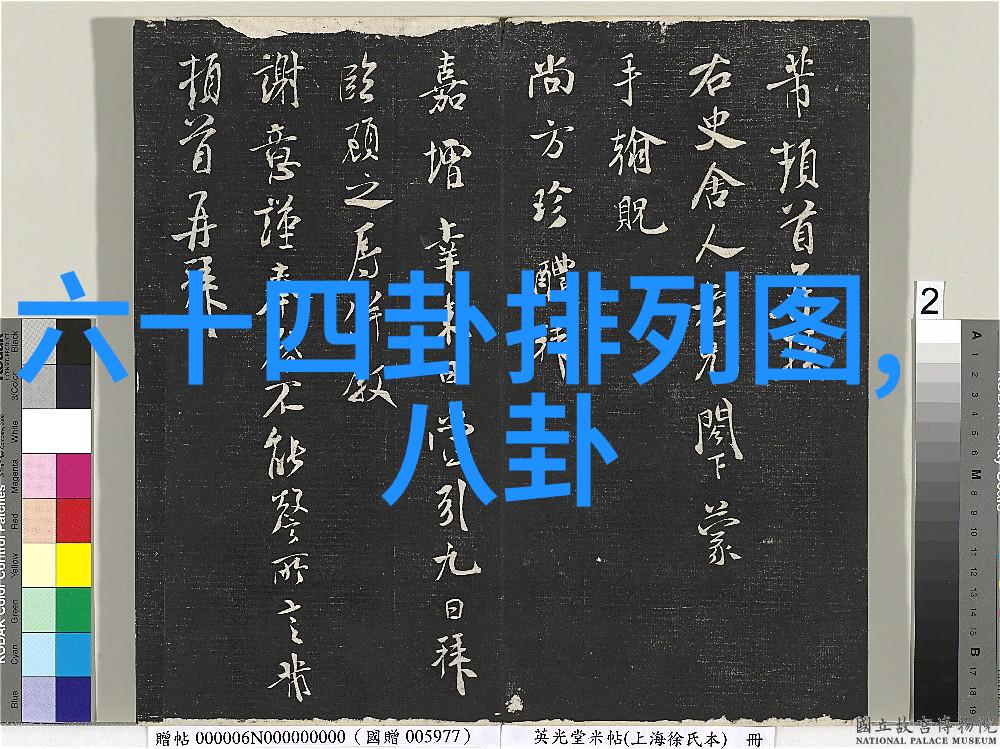 六十四卦排列图,
八卦
芾頓首再拜
右史舍人兄閣下蒙
手翰貺
尚方珍醴拜
嘉增幸來日引九日拜
臨顧之辱教
謝意謹奉不能罄所言芾
頓首再拜
2
A 1 2 3 4 5 6 M 8 9 10 11 12 13 14 15 B 17 18 19
Black
3/Color
White
Magenta
Red
Yellow
Green
Cyan
Blue
贈帖 000006N000000000 (國贈 005977)
英光堂米帖(上海徐氏本) 冊
國立故宮博物院
NATIONAL PALACE MUSEUM